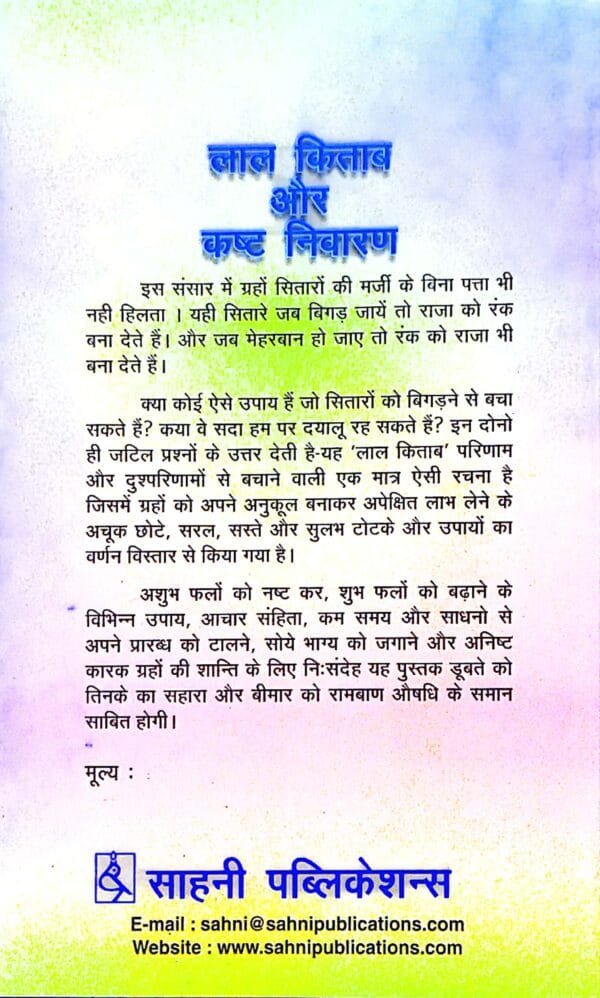 लाल किताब
और
कष्ट निवारण
इस संसार में ग्रहों सितारों की मर्जी के बिना पत्ता भी
नही हिलता । यही सितारे जब बिगड़ जायें तो राजा को रंक
बना देते हैं। और जब मेहरबान हो जाए तो रंक को राजा भी
बना देते हैं।
क्या कोई ऐसे उपाय हैं जो सितारों को बिगड़ने से बचा
सकते हैं? कया वे सदा हम पर दयालू रह सकते हैं? इन दोनो
ही जटिल प्रश्नों के उत्तर देती है-यह ‘लाल किताब’ परिणाम
और दुश्परिणामों से बचाने वाली एक मात्र ऐसी रचना है
जिसमें ग्रहों को अपने अनुकूल बनाकर अपेक्षित लाभ लेने के
अचूक छोटे, सरल, सस्ते और सुलभ टोटके और उपायों का
वर्णन विस्तार से किया गया है।
अशुभ फलों को नष्ट कर, शुभ फलों को बढ़ाने के
विभिन्न उपाय, आचार संहिता, कम समय और साधनो से
अपने प्रारब्ध को टालने, सोये भाग्य को जगाने और अनिष्ट
कारक ग्रहों की शान्ति के लिए निःसंदेह यह पुस्तक डूबते को
तिनके का सहारा और बीमार को रामबाण औषधि के समान
साबित होगी।
मूल्य :
साहनी पब्लिकेशन्स
E-mail : sahni@sahnipublications.com
Website : www.sahnipublications.com